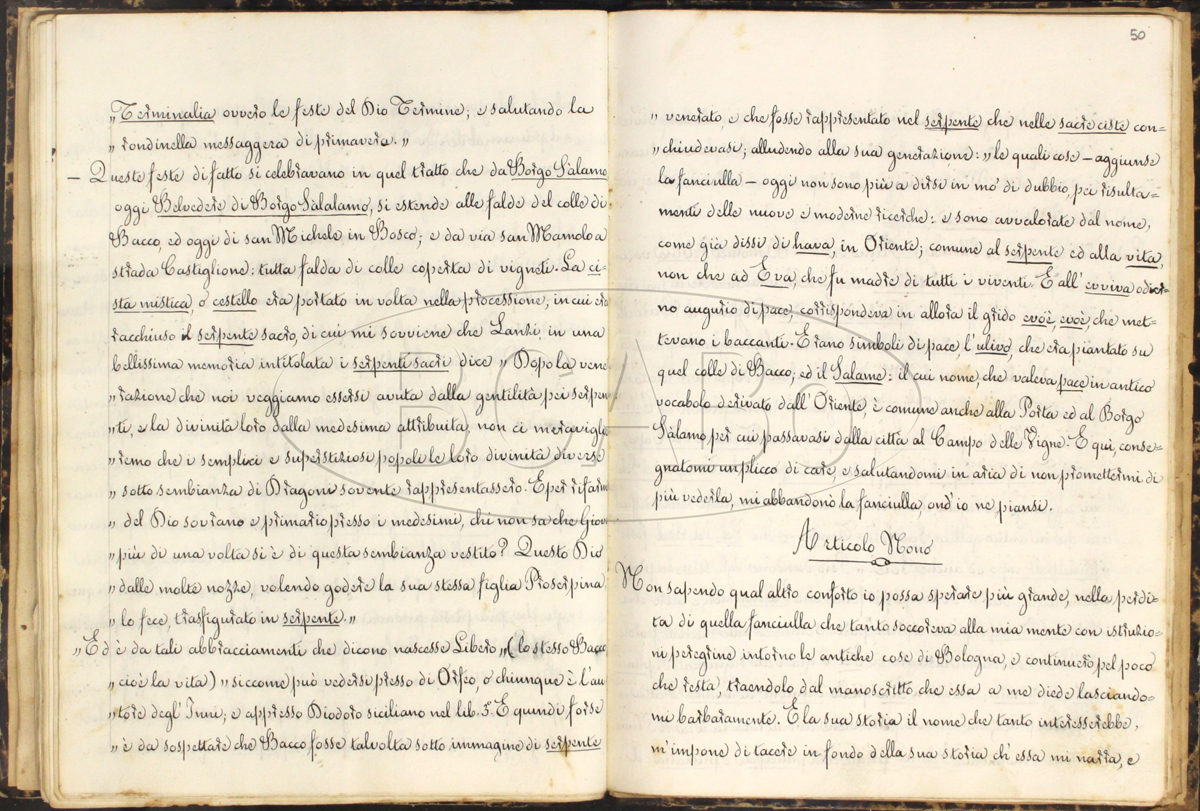 „Terminalia ovvero le feste del Dio Termine; e salutando la
„ rondinella messaggera di primavera. „
— Queste feste di fatto si celebravano in quel tratto che da Borgo Salamo
oggi Belvedere di Borgo Salalamo, si estende alle falde del colle di
Bacco, ed oggi di san Michele in Bosco; e da via san Mamolo a
strada Castiglione: tutta falda di colle coperta di vigneti. La ci=
sta mistica, o cestello era portato in volta nella processione, in cui era
racchiuso il serpente sacro, di cui mi sovviene che Lanzi, in una
bellissima memoria intitolata i serpenti sacri dice „ Dopo la vene
„razione che noi veggiamo essersi avuta dalla gentilità pei serpen
„ti, e la divinità loro dalla medesima attribuita, non ci meraviglie
„remo che i semplici e superstiziosi popoli le loro divinità diverse
„ sotto sembianza di Dragoni sovente rappresentassero. E per rifarm
„ del Dio sovrano e primario presso i medesimi, chi non sa che Giov
„più di una volta si è di questa sembianza vestito? Questo Dio
„dalle molte nozze, volendo godere la sua stessa figlia Proserpina
„ lo fece, trasfigurato in serpente. „
„Ed è da tali abbracciamenti che dicono nascesse Libero „(lo stesso Bacco
„ cioè la vita) „ siccome può vedersi presso di Orfeo, o chiunque è l'au
„tore degl' Inni; e appresso Diodoro siciliano nel lib. 5. E quindi forse
„ è da sospettare che Bacco fosse talvolta sotto immagine di serpente
50
„ venerato, e che fosse rappresentato nel serpente che nelle sacre ciste con=
„ chiudevasi; alludendo alla sua generazione: „ le quali cose — aggiunse
la fanciulla — oggi non sono più a dirsi in mo' di dubbio, pei risulta=
menti delle nuove e moderne ricerche: e sono avvalorate dal nome,
come già dissi di hava, in Oriente; comune al serpente ed alla vita,
non che ad Eva, che fu madre di tutti i viventi. E all' evviva odier=
no augurio di pace, corrispondeva in allora il grido evoè, evoè, che met=
tevano i baccanti. Erano simboli di pace, l'ulivo, che era piantato su
quel colle di Bacco; ed il Salame: il cui nome, che valeva pace in antico
vocabolo derivato dall' Oriente, è comune anche alla Porta ed al Borgo
Salamo per cui passavasi dalla città al Campo delle Vigne. E qui, conse=
gnatomi un plicco di care, e salutandomi in aria di non promettermi di
più vederla, mi abbandonò la fanciulla, ond' io ne piansi.
Articolo Nono
Non sapendo qual altro conforto io possa sperare più grande, nella perdi=
ta di quella fanciulla che tanto soccoreva alla mia mente con istruzio=
ni peregrine intorno le antiche cose di Bologna, e continuerò pel poco
che resta, traendolo dal manoscritto, che essa a me diede lasciando=
mi barbaramente. E la sua storia il nome che tanto interesserebbe,
m'impone di tacere in fondo della sua storia ch' essa mi narra, e